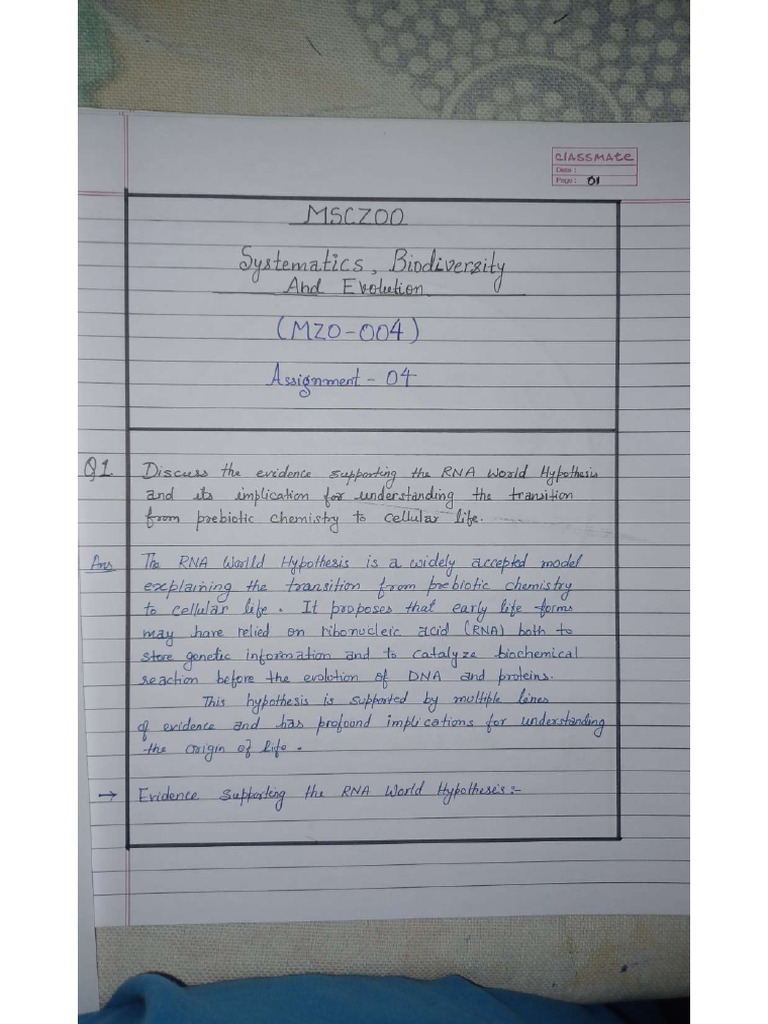 classmate
Date :
Page : 01
MSCZOO
Systematics, Biodiversity
And Evolution
(MZO-004)
Assignment - 04
Q1. Discuss the evidence supporting the RNA World Hypothesis
and its implication for understanding the transition
from prebiotic chemistry to cellular life.
Ans The RNA World Hypothesis is a widely accepted model
explaining the transition from prebiotic chemistry
to cellular life. It proposes that early life forms
may have relied on ribonucleic acid (RNA) both to
store genetic information and to catalyze biochemical
reaction before the evolution of DNA and proteins.
This hypothesis is supported by multiple lines
of evidence and has profound implications for understanding
the origin of life.
→ Evidence supporting the RNA World Hypothesis:-